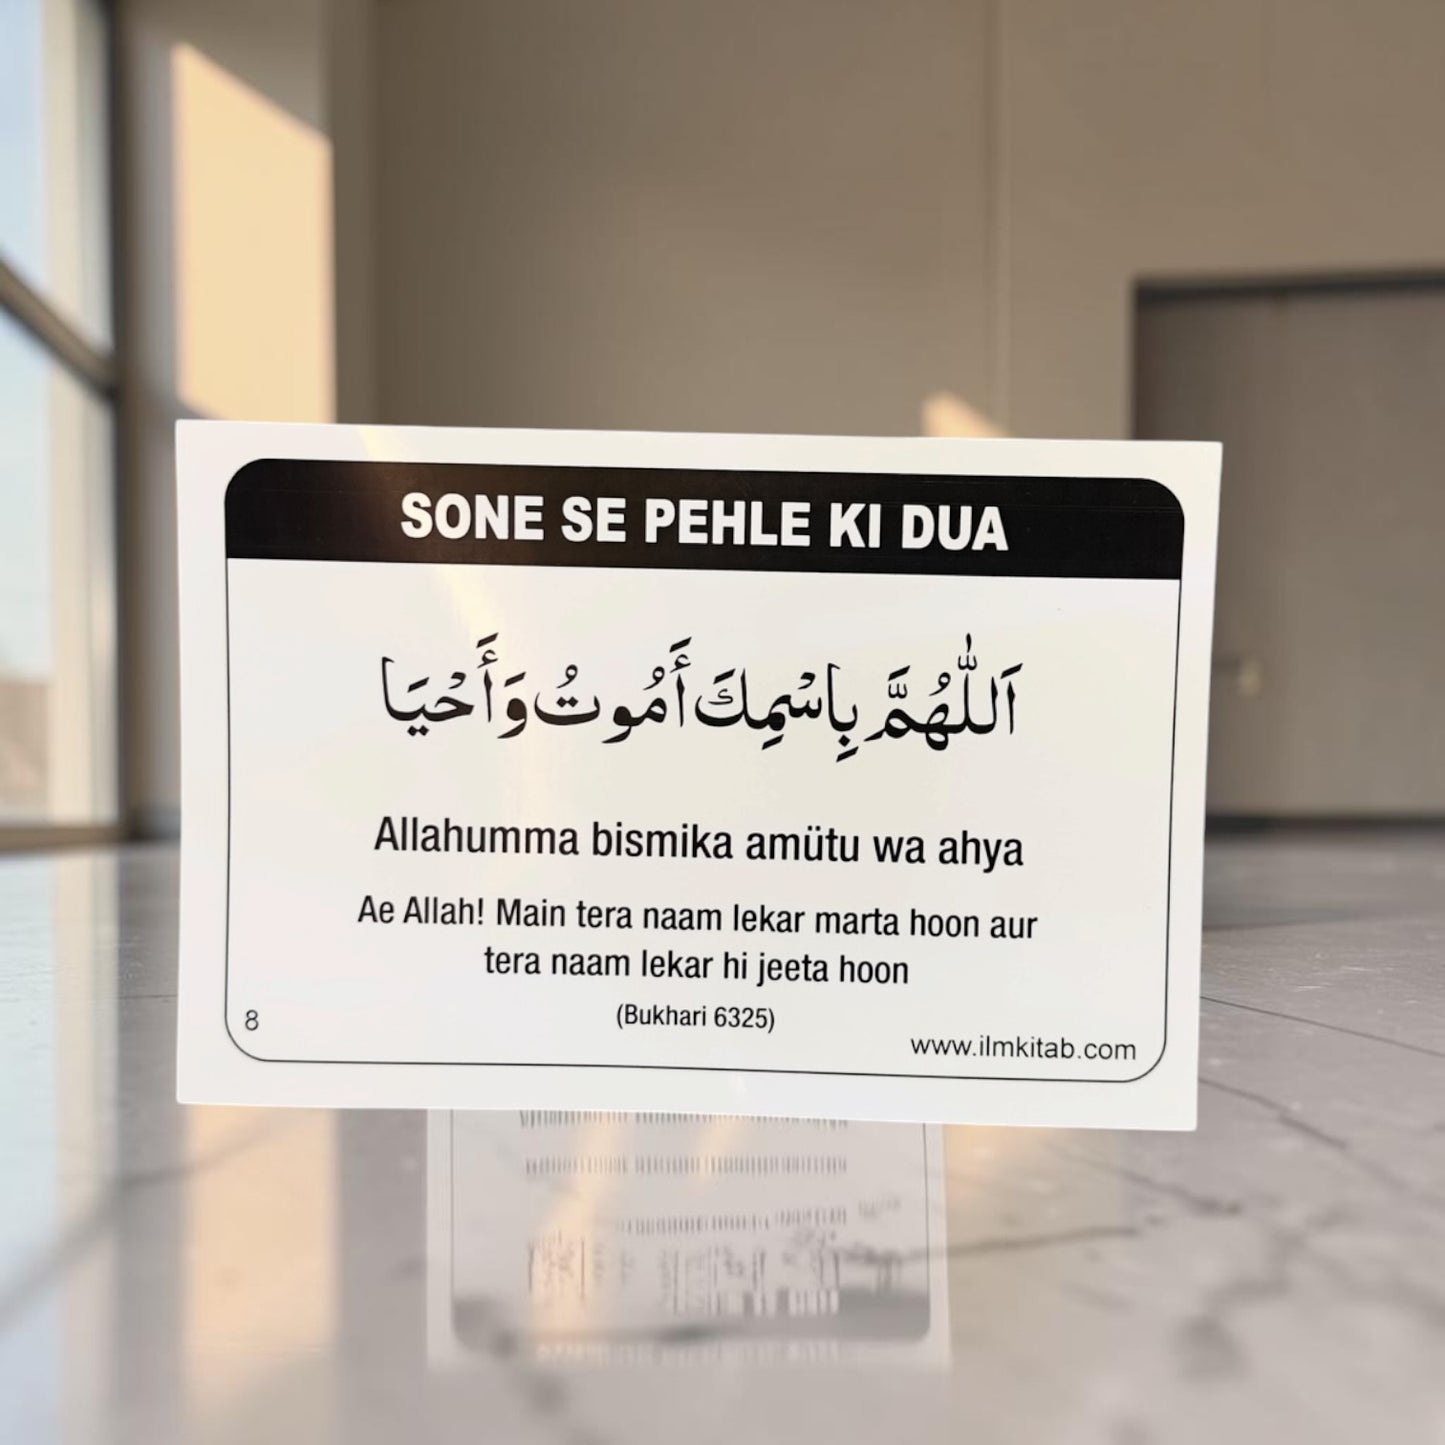 SONE SE PEHLE KI DUA
اَللّٰهُمَّ بِاسْمِكَ أَمُوتُ وَأَحْيَا
Allahumma bismika amütu wa ahya
Ae Allah! Main tera naam lekar marta hoon aur
tera naam lekar hi jeeta hoon
(Bukhari 6325)
8
www.ilmkitab.com